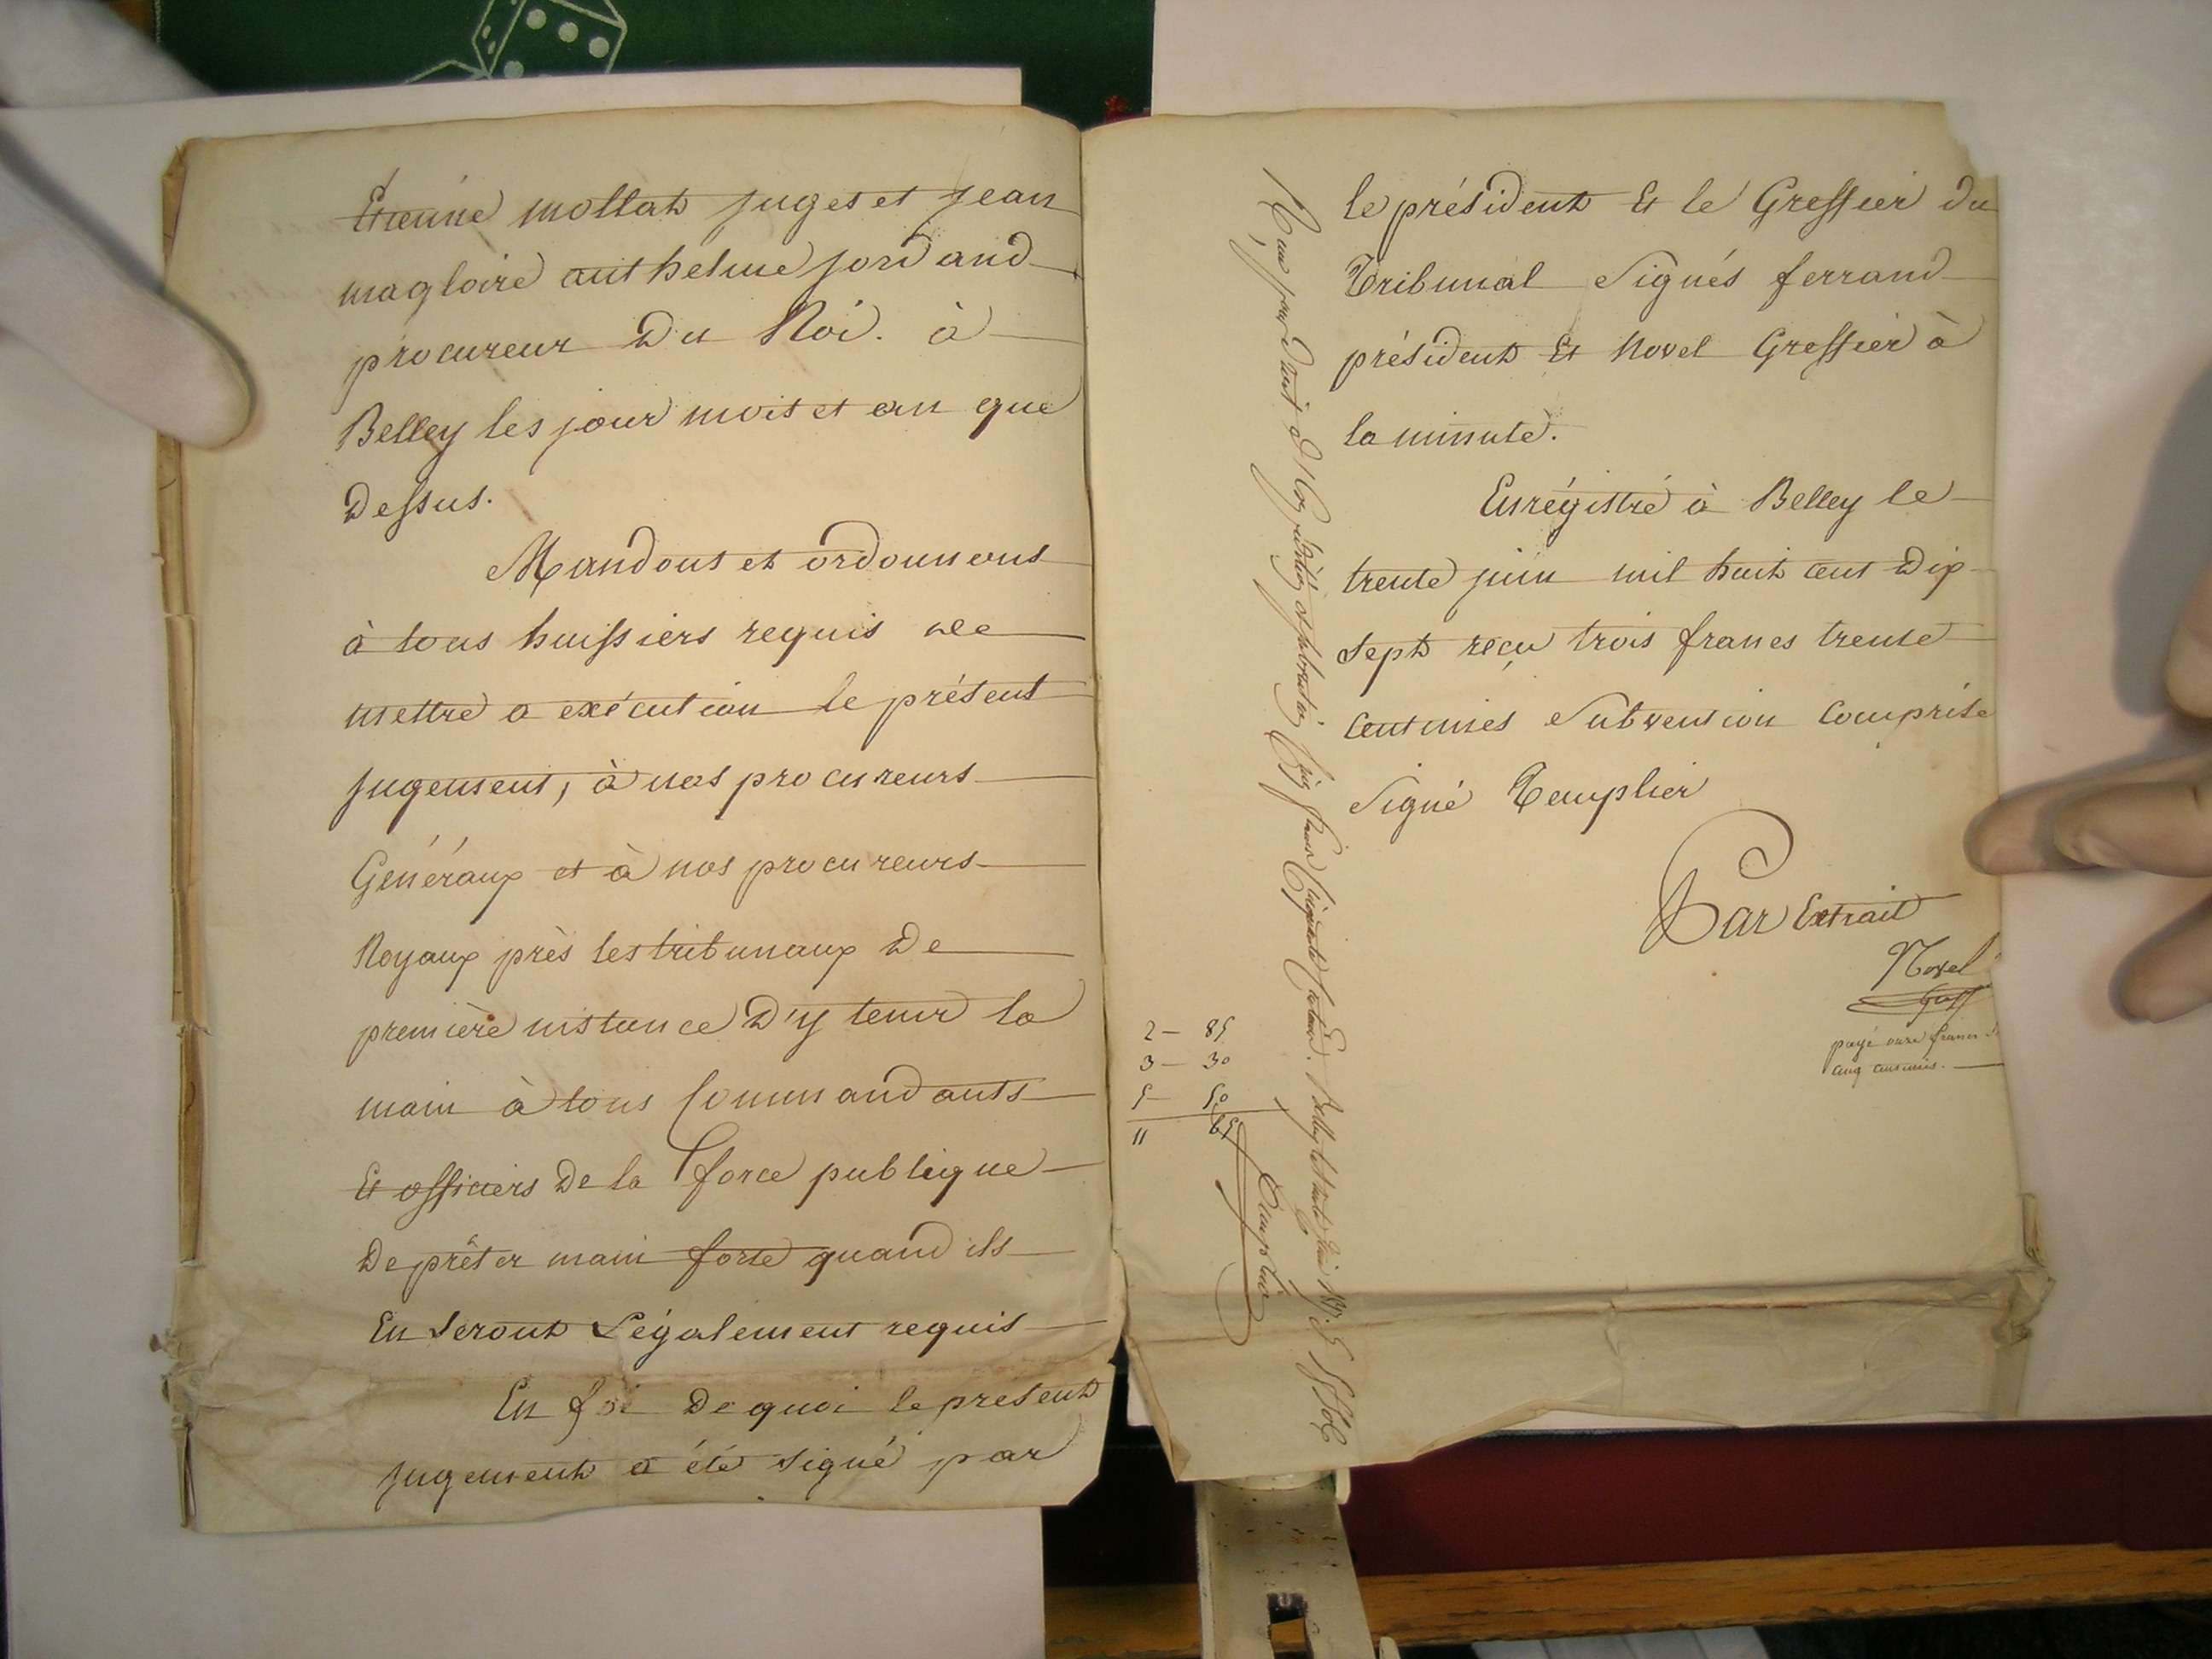 Etienne mollat juges et jean
magloire anthelme jordand
procureur Du Roi. à
Belley les jour mois et an que
Dessus.
Mandons et ordonnons
à tous huissiers requis de
mettre a exécution le présent
jugement, à nos procureurs
Généraux et à nos procureurs
Royaux près les tribunaux De
première instance D'y tenir la
main à tous Commandants
Et officiers De la force publique
De prêter main forte quand ils
En seront Légalement requis
En foi De quoi le present
jugement a été signé par
le président Et le Greffier du
Tribunal Signés ferrand
président Et Novel Greffier à
la minute.
Enrégistré à Belley le
trente juin mil huit cent Dix
Sept reçu trois francs trente
Centimes Subvention Comprise
Signé Templier
Par Extrait
Novel
Greff
payé onze francs
cinq centimes.
Reçu pour Droit de cinq francs Cinquante Centimes. Belley le trente juin 1817.
2 - 85
3 - 30
5 - 50
11 65
Templier